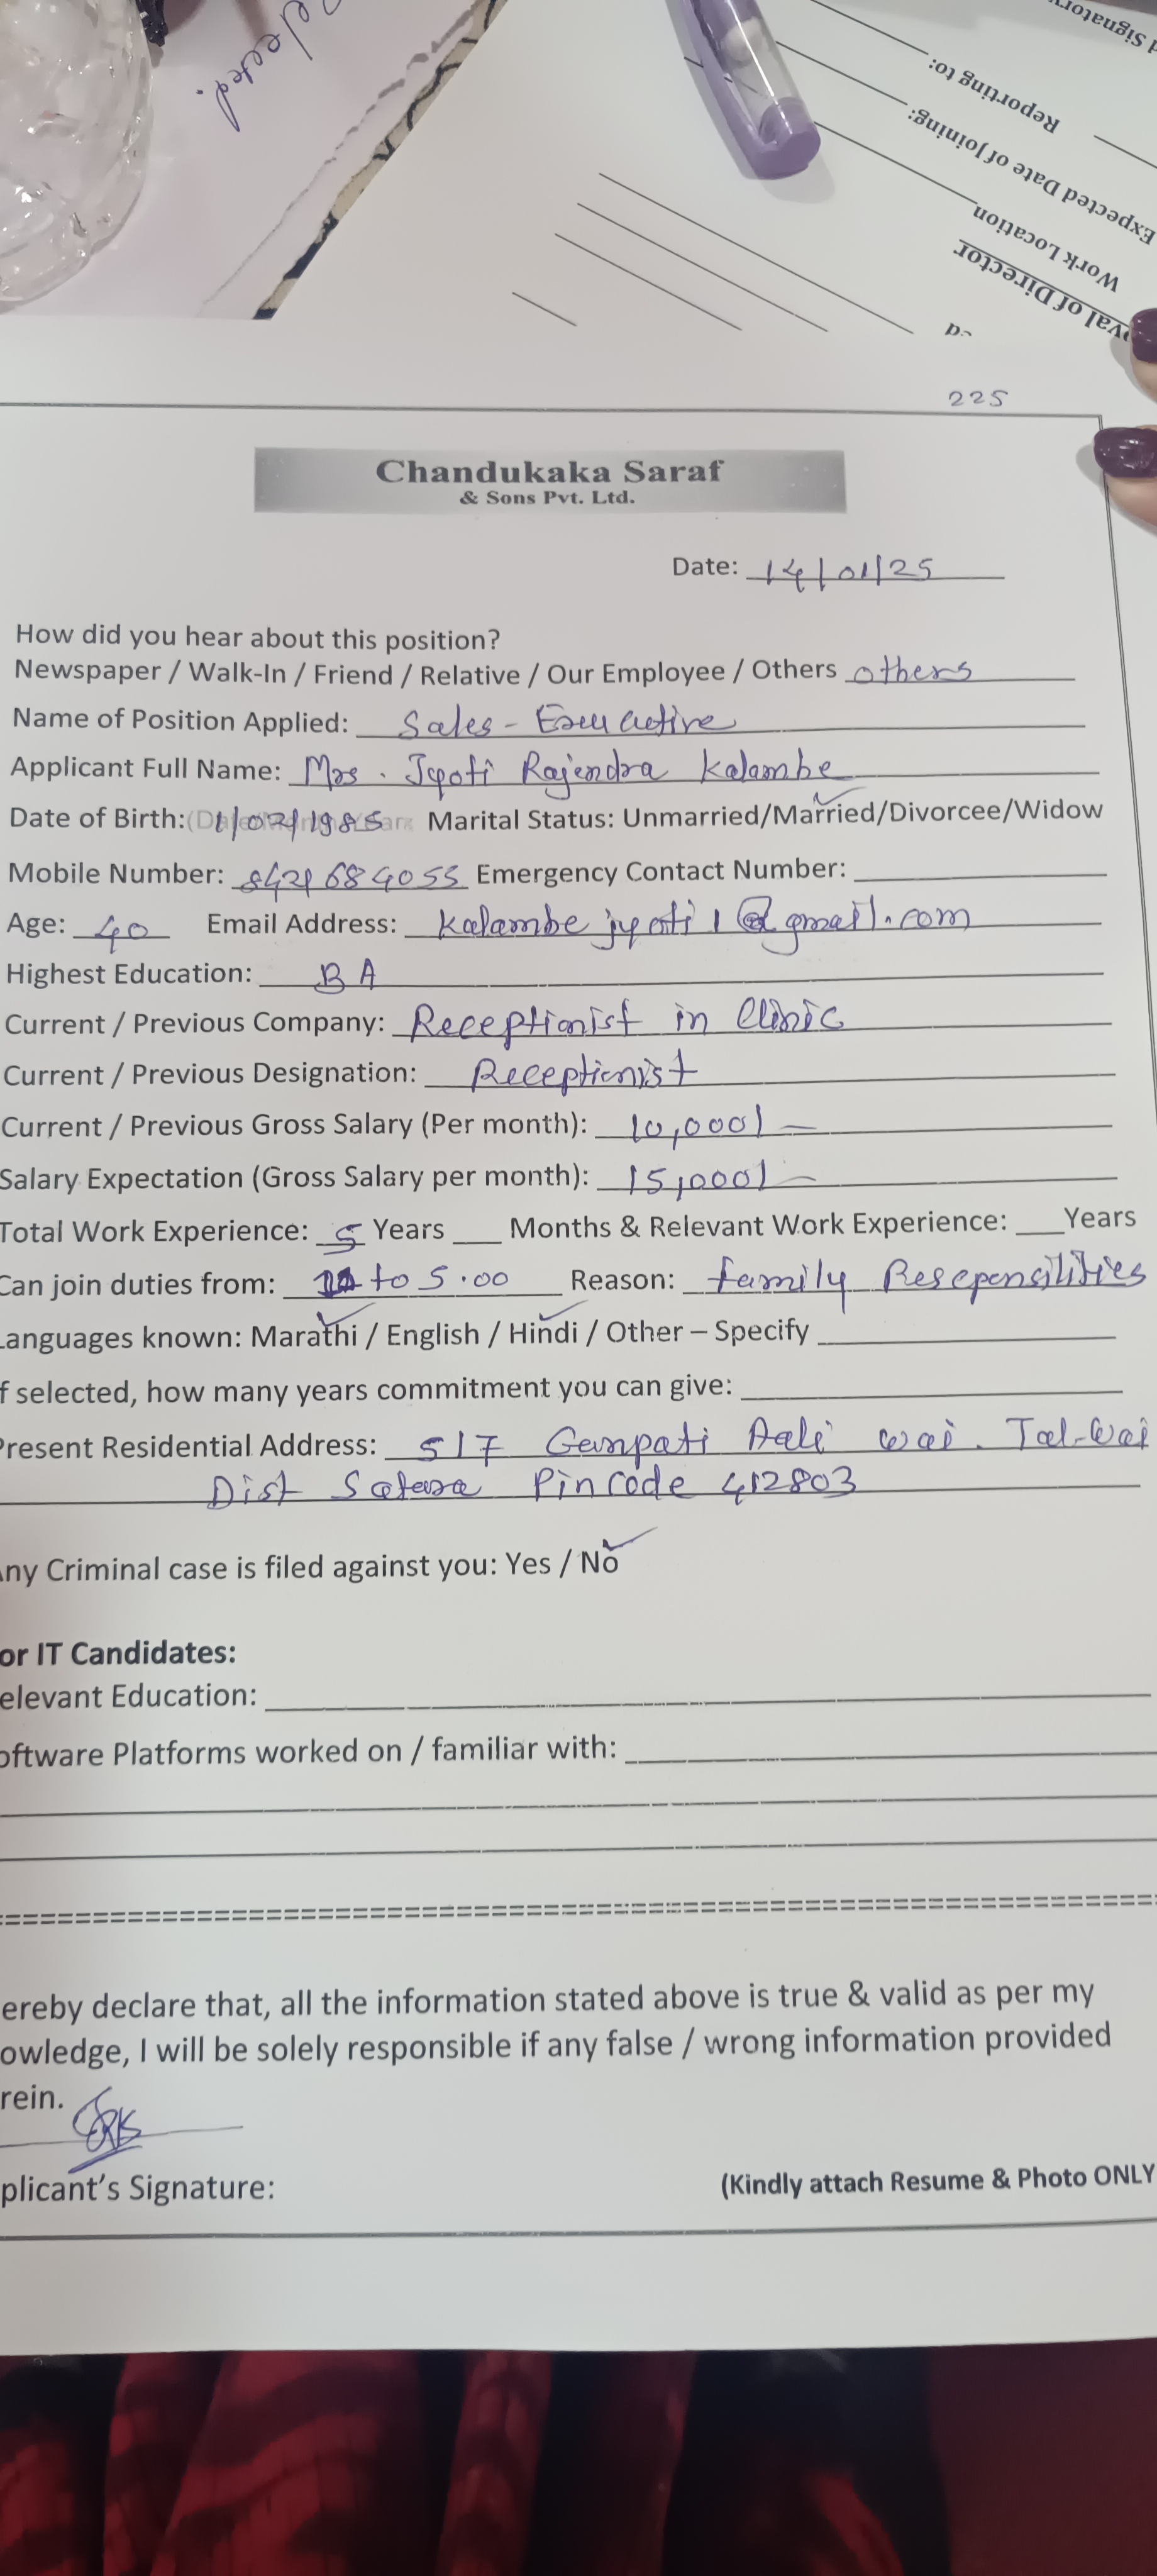 Signatory
Reporting to:
Expected Date of Joining:
Work Location
val of Director
225
Chandukaka Saraf
& Sons Pvt. Ltd.
Date: 14/01/25
How did you hear about this position?
Newspaper / Walk-In / Friend / Relative / Our Employee / Others others
Name of Position Applied: Sales - Exeuactive
Applicant Full Name: Mrs. Jyoti Rajendra Kalambe
Date of Birth: 1/02/1985 Marital Status: Unmarried/Married/Divorcee/Widow
Mobile Number: 8421684055 Emergency Contact Number:
Age: 40 Email Address: kalambejyoti1@gmail.com
Highest Education: BA
Current / Previous Company: Receptionist in Clinic
Current / Previous Designation: Receptionist
Current / Previous Gross Salary (Per month): 10,000/-
Salary Expectation (Gross Salary per month): 15,000/-
Total Work Experience: 5 Years Months & Relevant Work Experience: Years
Can join duties from: to 5.00 Reason: family Resepensilities
Languages known: Marathi / English / Hindi / Other – Specify
f selected, how many years commitment you can give:
Present Residential Address: 517 Ganpati Aali wai. Tal-Wai
Dist Satara Pincode 412803
ny Criminal case is filed against you: Yes / No
or IT Candidates:
elevant Education:
oftware Platforms worked on / familiar with:
ereby declare that, all the information stated above is true & valid as per my
owledge, I will be solely responsible if any false / wrong information provided
rein.
plicant's Signature: (Kindly attach Resume & Photo ONLY